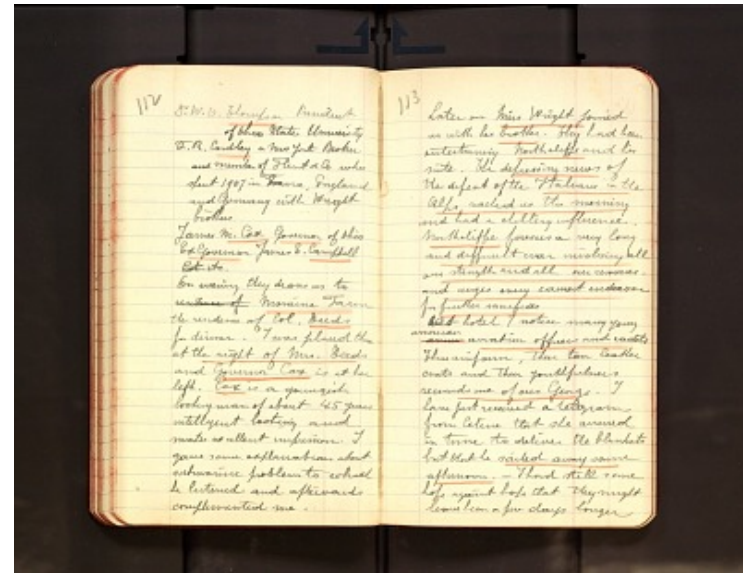 112
Dr. W. O. Thompson President
of Ohio State University
F. R. Cordley a New York Broker
and member of Flint & Co who
spent 1907 in France, England
and Germany with Wright
brothers.
James M. Cox Governor of Ohio
Ex Governor James E. Campbell
In evening they drove us to
Moraine Farm
the residence of Col. Deeds
for dinner. I was placed then
at the right of Mrs. Deeds
and Governor Cox is at her
left. Cox is a youngish
looking man of about 45 years
intelligent looking and
makes excellent impression. I
gave some explanations about
submarine problem to which
he listened and afterwards
complimented me.
113
Later on Miss Wright joined
us with her brother. They had been
entertaining Northcliffe and his
suite. The depressing news of
the defeat of the Italians in the
Alps, reached us this morning
and had a chilling influence.
Northcliffe foresees a very long
and difficult war involving all
our strength and all our resources
and urges every earnest endeavor
for further sacrifices
At hotel I notice many young
american
aviation officers and cadets
Their uniform, their tan leather
coats and their youthfulness
reminds me of our George. I
have just received a telegram
from Celine that she arrived
in time to deliver the blankets
but that he sailed away same
afternoon. — I had still some
hope against hope that they might
leave him a few days longer